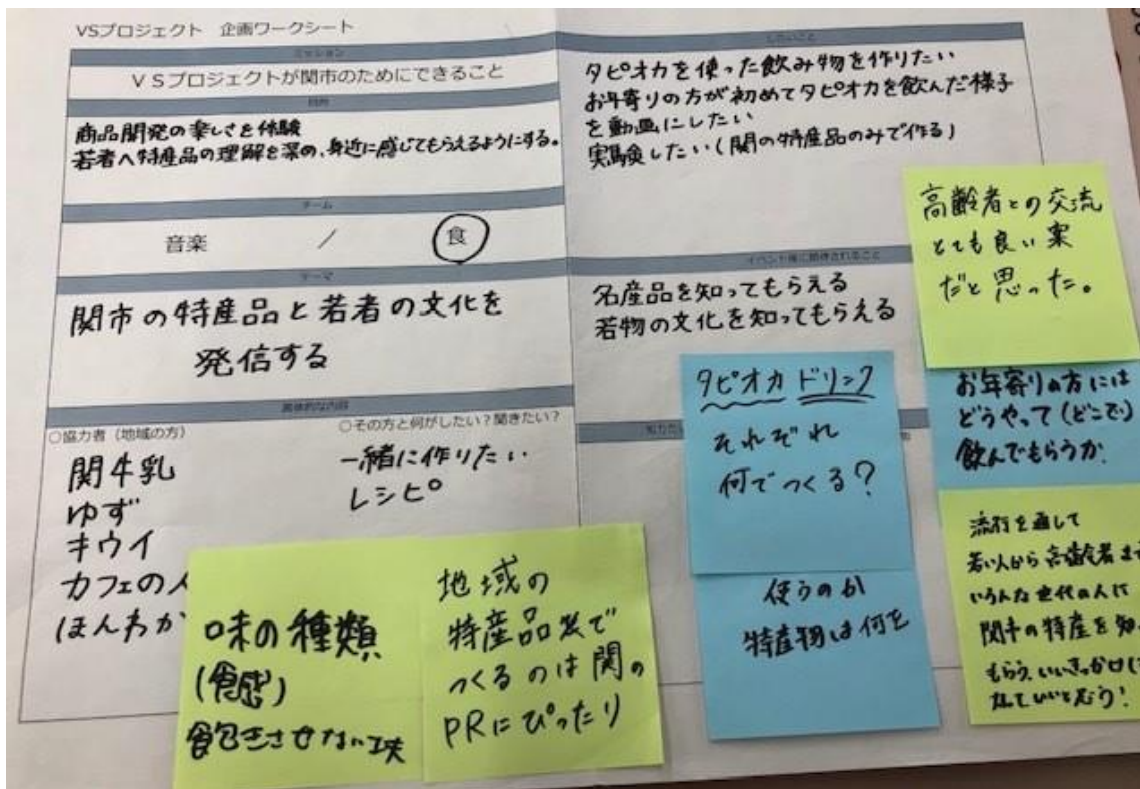 VSプロジェクト 企画ワークシート
ミッション
VSプロジェクトが関市のためにできること
目的
商品開発の楽しさを体験
若者へ特産品の理解を深め、身近に感じてもらえるようにする。
チーム
音楽 / 食
テーマ
関市の特産品と若者の文化を
発信する
具体的な内容
○協力者（地域の方）
関牛乳
ゆず
キウイ
カフェの人
ほんわか
○その方と何がしたい？聞きたい？
一緒に作りたい
レシピ
したいこと
タピオカを使った飲み物を作りたい
お年寄りの方が初めてタピオカを飲んだ様子
を動画にしたい
実験したい(関の特産品のみで作る)
イベント後に期待されること
名産品を知ってもらえる
若物の文化を知ってもらえる
高齢者との交流
とても良い案
だと思った。
タピオカドリンク
それぞれ
何でつくる?
お年寄りの方には
どうやって(どこで)
飲んでもらうか
使うのか
特産物は何を
流行を通して
若い人から高齢者まで
いろんな世代の人に
関市の特産を知
もらう、いいきっかけ
なていいと思う!
味の種類
(食感)
飽きさせない工夫
地域の
特産品で
つくるのは関の
PRにぴったり